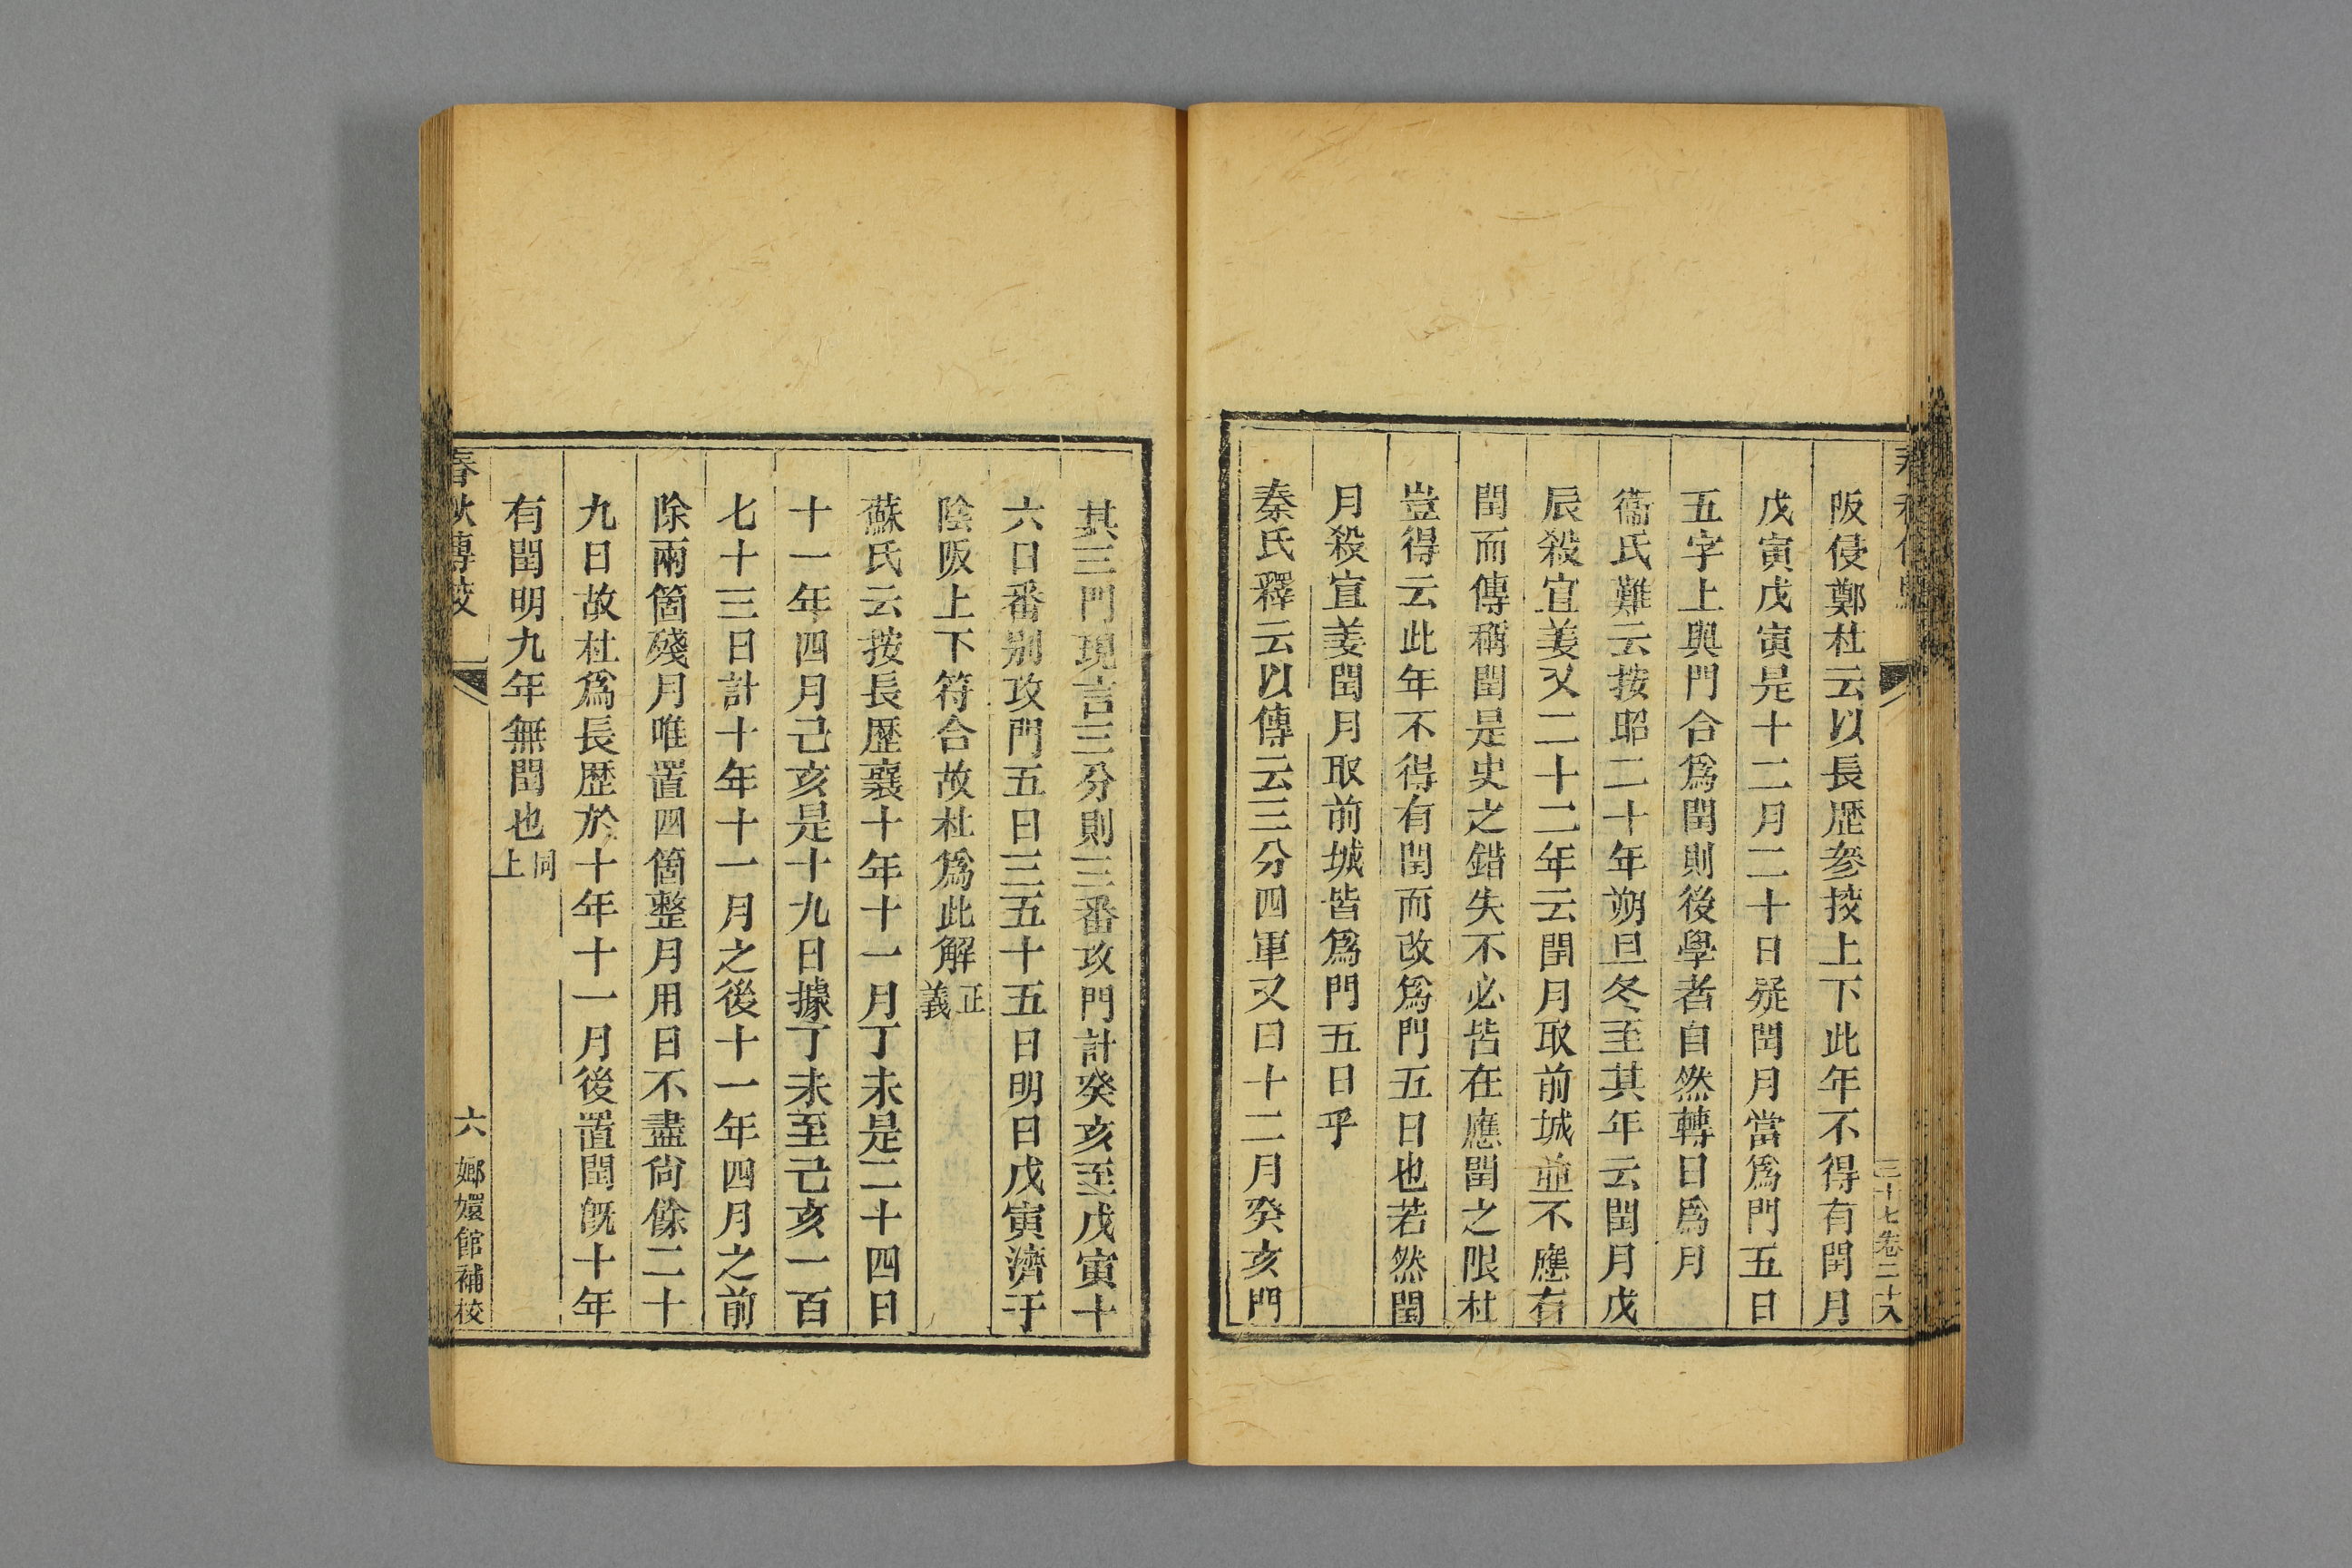 三十七卷二十八
阪侵鄭杜云以長歷參挍上下此年不得有閏月
戊寅戊寅是十二月二十日疑閏月當爲門五日
五字上與門合爲閏則後學者自然轉日爲月
衞氏難云按昭二十年朔旦冬至其年云閏月戊
辰殺宣姜又二十二年云閏月取前城並不應有
閏而傳稱閏是史之錯失不必皆在應閏之限杜
豈得云此年不得有閏而改爲門五日也若然閏
月殺宣姜閏月取前城皆爲門五日乎
秦氏釋云以傳云三分四軍又曰十二月癸亥門
其三門現言三分則三番攻門計癸亥至戊寅十
六日番别攻門五日三五十五日明日戊寅濟于
陰阪上下符合故杜爲此解正義
蘇氏云按長歷襄十年十一月丁未是二十四日
十一年四月己亥是十九日據丁未至己亥一百
七十三日計十年十一月之後十一年四月之前
除兩箇殘月唯置四箇整月用日不盡尙餘二十
九日故杜爲長歷於十年十一月後置閏旣十年
有閏明九年無閏也同上
春秋傳挍
六 嫏嬛館補校